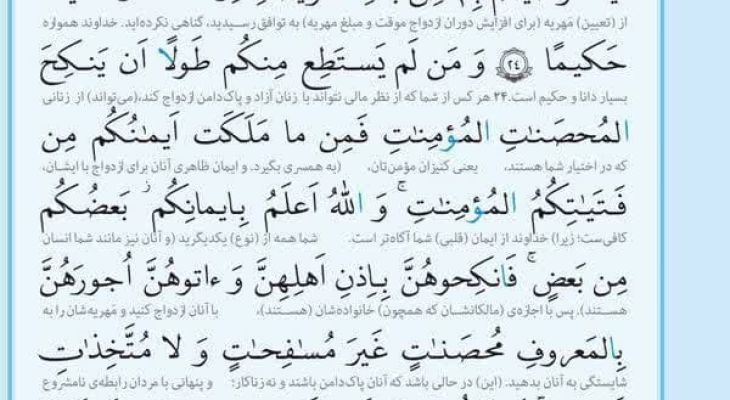 از (تعیین) مَهریه (برای افزایش دوران ازدواج موقت و مبلغ مهریه) به توافق رسیدید، گناهی نکرده‌اید. خداوند همواره
حَكيمًا ﴿٢٤﴾ وَ مَن لَم يَستَطِع مِنكُم طَولًا اَن يَنكِحَ
بسیار دانا و حکیم است.۲۴ هر کس از شما که از نظر مالی نتواند با زنان آزاد و پاک‌دامن ازدواج کند،(می‌تواند) از زنانی
المُحصَنٰتِ المُؤمِنٰتِ فَمِن ما مَلَكَت اَيمٰنُكُم مِن
که در اختیار شما هستند، یعنی کنیزان مؤمن‌تان، (به همسری بگیرد. و ایمان ظاهری آنان برای ازدواج با ایشان،
فَتَيٰتِكُمُ المُؤمِنٰتِ ۚ وَ اللّٰهُ اَعلَمُ بِايمانِكُم ۖ بَعضُكُم
کافی‌ست؛ زیرا) خداوند از ایمان (قلبی) شما آگاه‌تر است. شما همه از (نوع) یکدیگرید (و آنان نیز مانند شما انسان
مِن بَعضٍ ۚ فَانكِحوهُنَّ بِاِذنِ اَهلِهِنَّ وَ ءاتوهُنَّ اُجورَهُنَّ
هستند). پس با اجازه‌ی (مالکانشان که همچون) خانواده‌شان (هستند)، با آنان ازدواج کنید و مَهریه‌شان را به
بِالمَعروفِ مُحصَنٰتٍ غَيرَ مُسٰفِحٰتٍ وَ لا مُتَّخِذٰتِ
شایستگی به آنان بدهید. (این) در حالی باشد که آنان پاک‌دامن باشند و نه زناکار؛ و پنهانی با مردان رابطه‌ی نامشروع